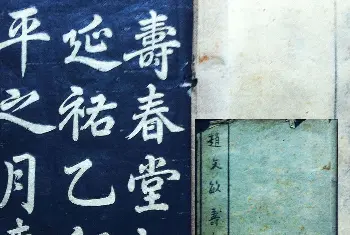 壽春堂
延祐乙
平之月
趙文敏 壽